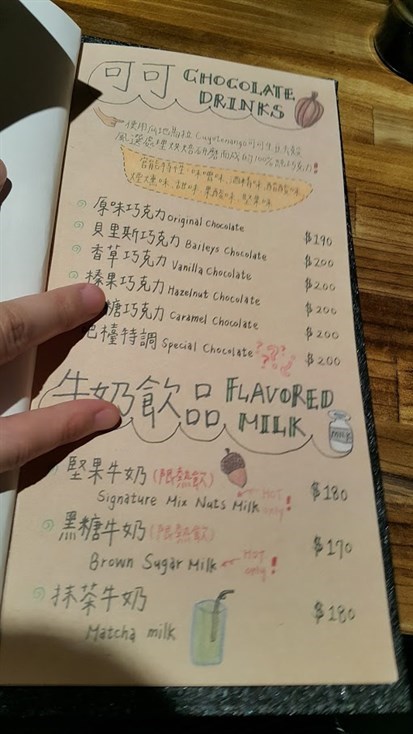 可可 CHOCOLATE
DRINKS
使用瓜地馬拉
風選處理烘焙研磨而成的100%純巧克力!
原味巧克力 Original Chocolate $190
貝里斯巧克力 Baileys Chocolate $200
香草巧克力 Vanilla Chocolate $200
榛果巧克力 Hazelnut Chocolate $200
糖巧克力 Caramel Chocolate $200
吧檯特調 Special Chocolate ???¿ $200
牛奶飲品 FLAVORED
MILK
milk
堅果牛奶 (限熱飲) $180
Signature Mix Nuts Milk HOT only!
黑糖牛奶 (限熱飲) $170
Brown Sugar Milk HOT only!
抹茶牛奶 $180
Matcha milk